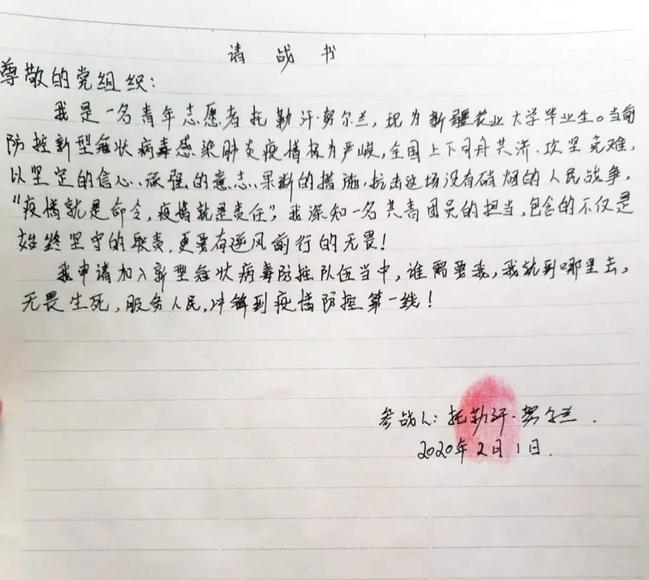 请战书
尊敬的党组织：
我是一名青年志愿者托勒汗·努尔兰，现为新疆农业大学毕业生。当前
防控新型冠状病毒感染肺炎疫情极为严峻，全国上下同舟共济、攻坚克难，
以坚定的信心、顽强的意志、果断的措施，抗击这场没有硝烟的人民战争，
“疫情就是命令，疫情就是责任”，我深知一名共青团员的担当，包含的不仅是
始终坚守的职责，更要有逆风前行的无畏！
我申请加入新型冠状病毒防控队伍当中，谁需要我，我就到哪里去，
无畏生死，服务人民，冲锋到疫情防控第一线！
参战人：托勒汗·努尔兰.
2020年2月1日.